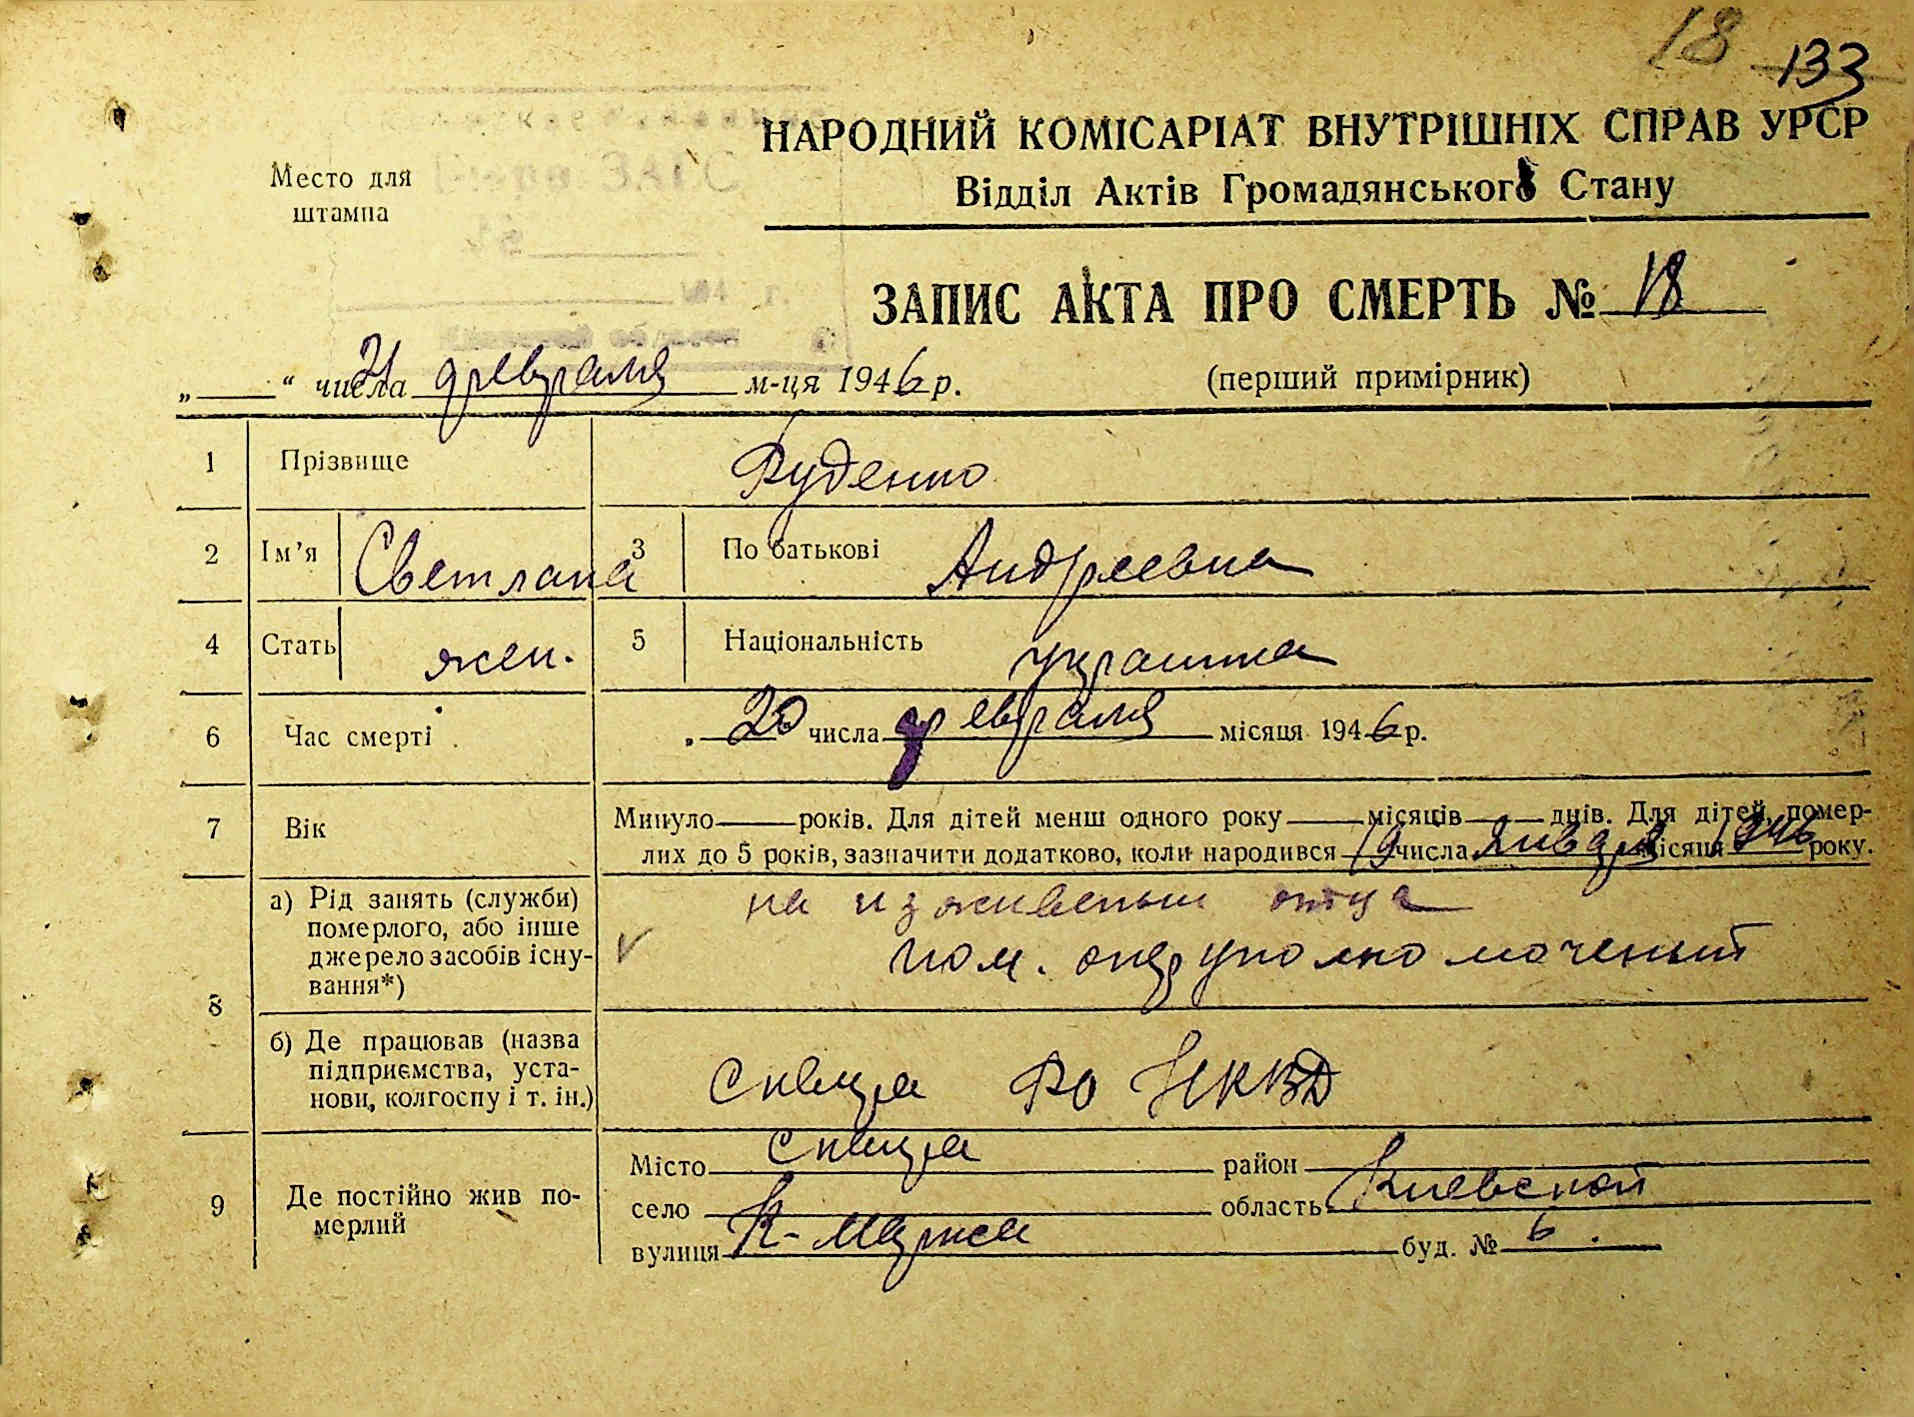 18 133
НАРОДНИЙ КОМІСАРІАТ ВНУТРІШНІХ СПРАВ УРСР
Место для
штампа
Відділ Актів Громадянського Стану
ЗАПИС АКТА ПРО СМЕРТЬ № 18
„ “ числа 21 февраля м-ця 1946 р.
(перший примірник)
1 Прізвище Руденко
2 Ім’я Светлана 3 По батькові Андреевна
4 Стать жен. 5 Національність украинка
6 Час смерті „ 20 числа февраля місяця 1946 р.
7 Вік Минуло років. Для дітей менш одного року місяців днів. Для дітей, помер-
лих до 5 років, зазначити додатково, коли народився 19 числа января місяця 1946 року.
8
а) Рід занять (служби)
померлого, або інше
джерело засобів існу-
вання*)
на иждивении отца
пом. оперуполномоченый
б) Де працював (назва
підприємства, уста-
нови, колгоспу і т. ін.)
Сквира РО НКВД
9 Де постійно жив по-
мерлий
Місто Сквира район
село область Киевской
вулиця К-Маркса буд. № 6.